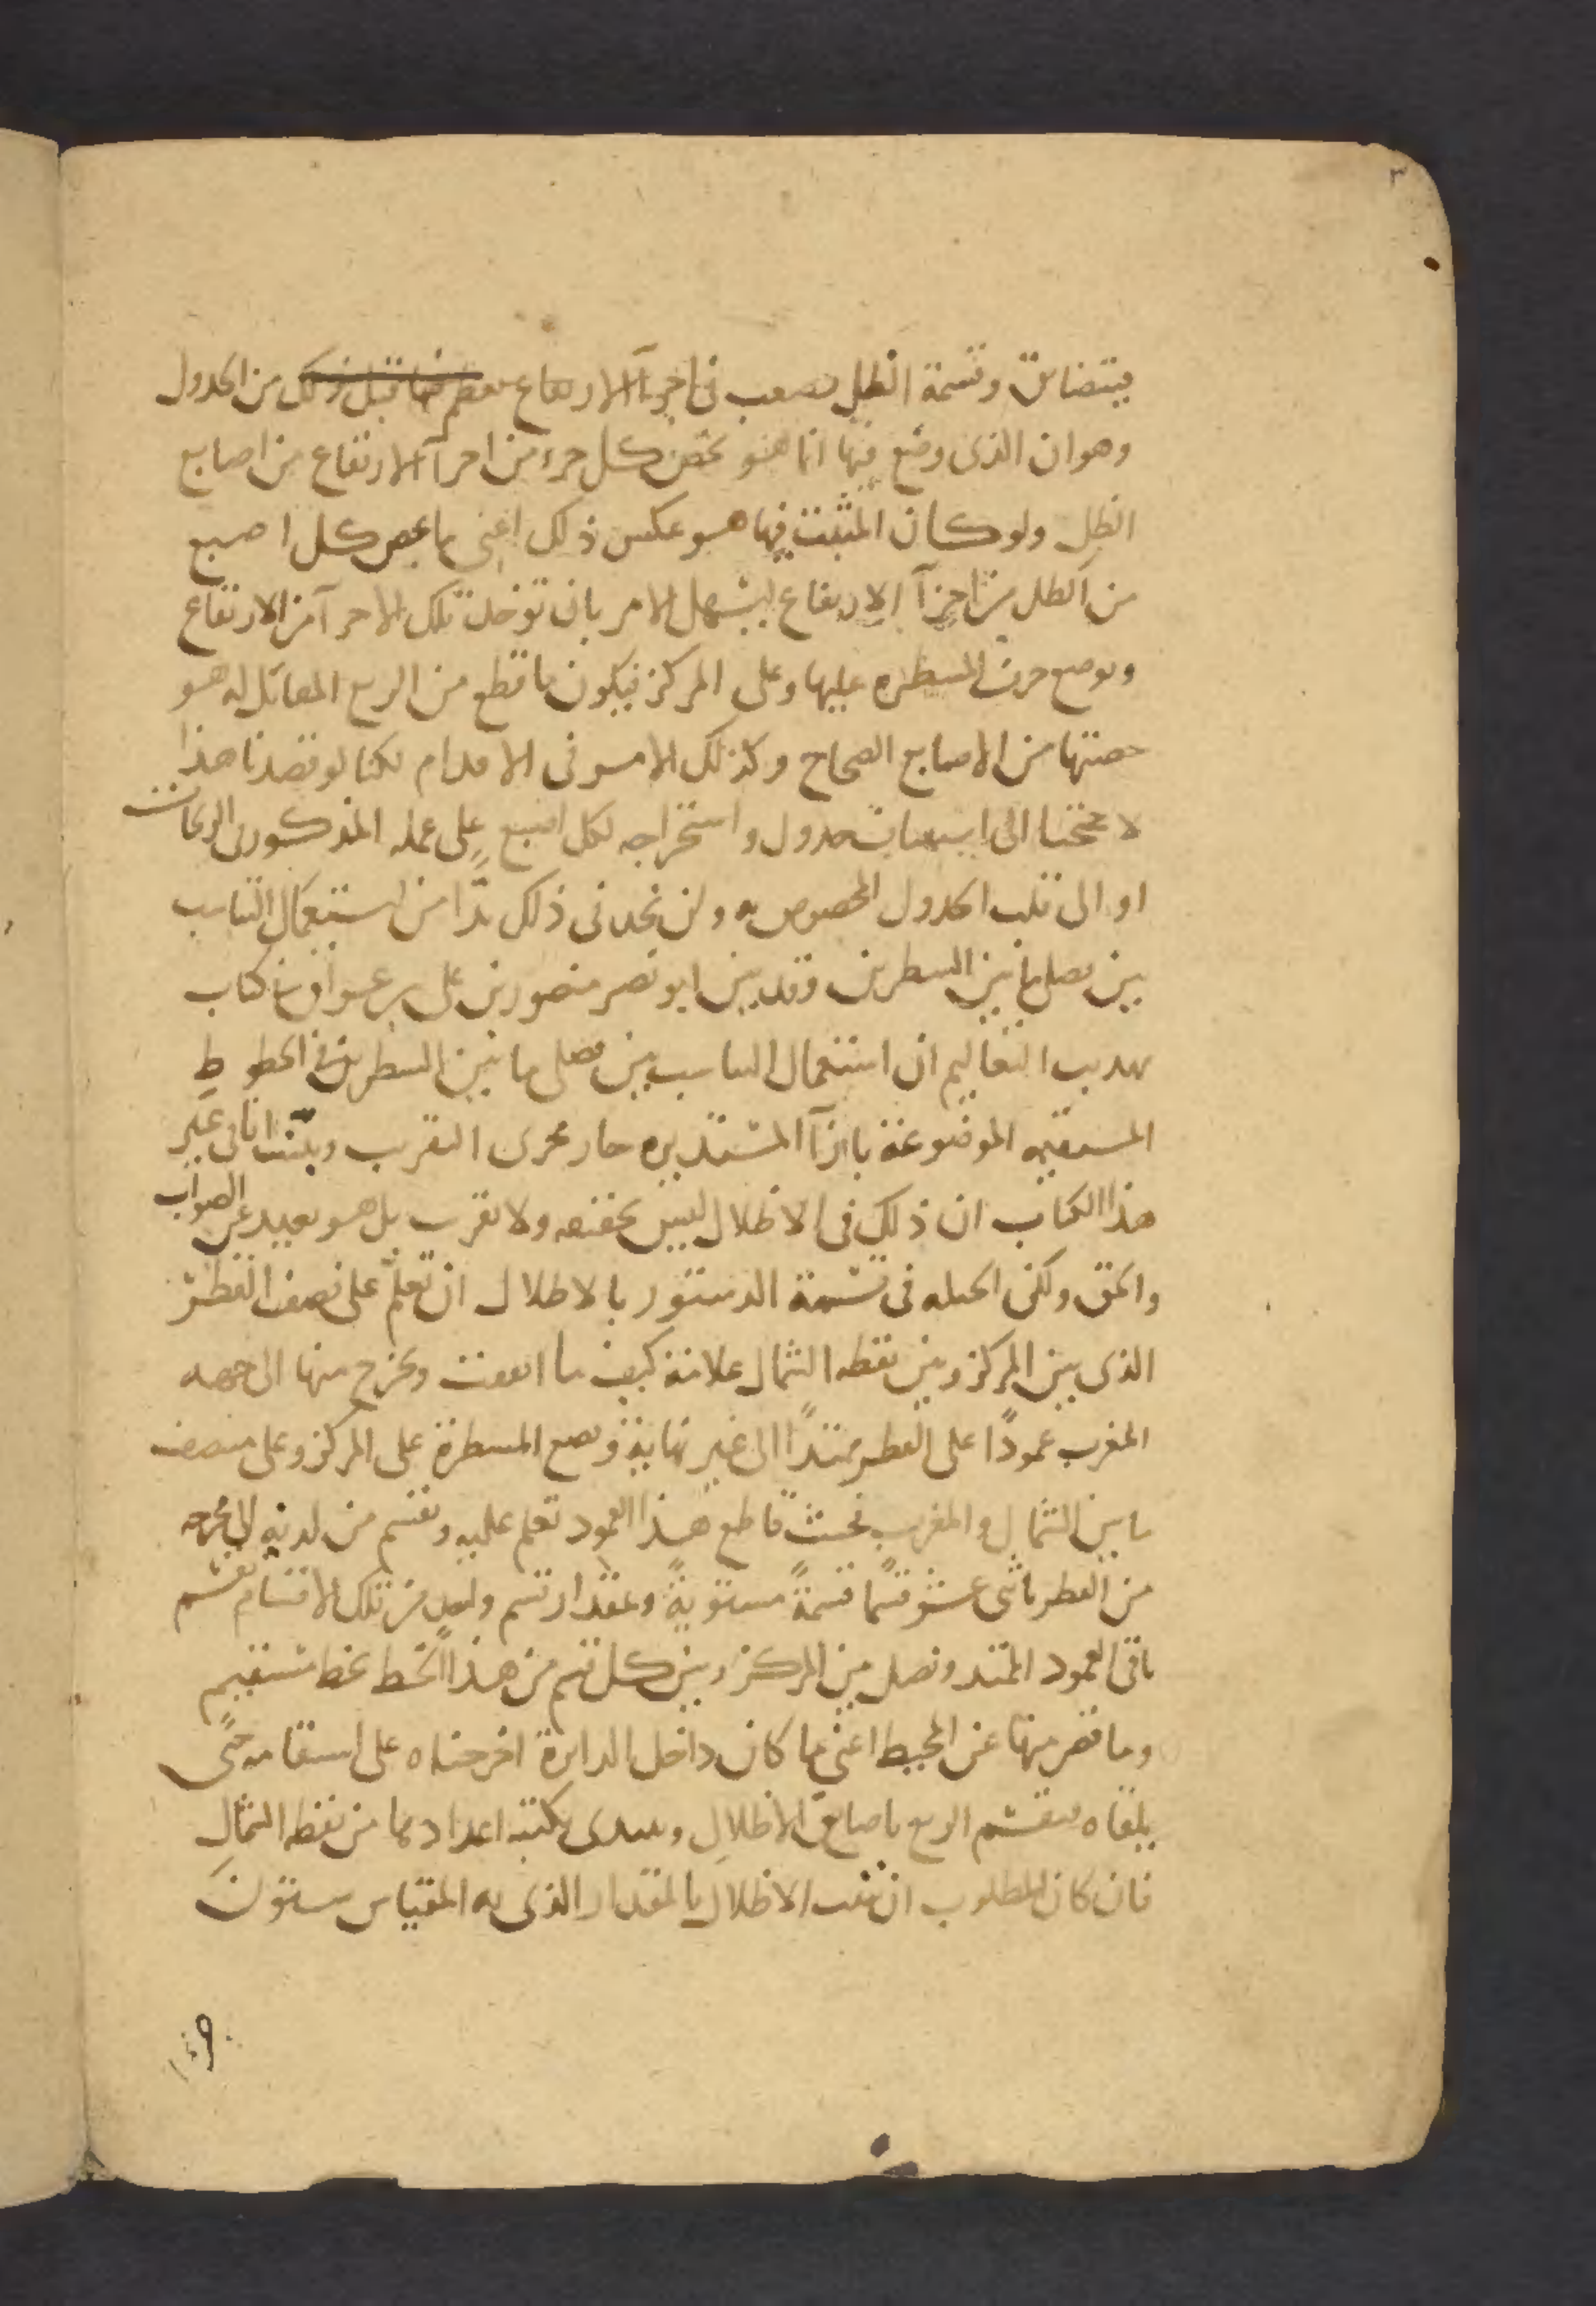 ٣
يتضايق وقسمة الظل تصعب فى اجزآ الارتفاع فعظم فيها قبل ذلك من الجدول
وهو ان الذى وضع فيها انما هو يخص كل جزء من اجزآ الارتفاع من اصابع
الظل ولو كان المثبت فيها هو عكس ذلك اعنى ما يخص كل اصبع
من الظل من اجزآ الارتفاع ليسهل الامر بان توخذ تلك الاجزآ من الارتفاع
ويوضع حرف المسطره عليها وعلى المركز فيكون ما قطع من الربع المقابل له هو
حصتها من الاصابع الصحاح وكذلك الامر فى الاقدام لكنا لو قصدنا هذا
لاحتجنا الى جدول واستخراجه لكل اصبع على عمله المذكور فى الزيجات
او الى قلب الجدول المخصوص به ولن نجد فى ذلك بدًّا من استعمال التناسب
بين فصلى ما بين السطرين وقد بين ابو نصر منصور بن على بن عراق فى كتاب
تهديب التعاليم ان استعمال التناسب بين فصلى ما بين السطرين فى الخطوط
المستقيمه الموضوعة بازآ المستديره جار مجرى التقريب وبيّنت انا فى غير
هذا الكتاب ان ذلك فى الاظلال ليس بحقيقه ولا تقريب بل هو بعيد عن الصواب
والحق ولكن الحيله فى قسمة الدستور بالاظلال ان تعلّم على نصف القطر
الذى بين المركز وبين نقطه الشمال علامة كيف ما اتفقت ويخرج منها الى جهه
المغرب عمودًا على القطر ممتدًا الى غير نهاية ونضع المسطرة على المركز وعلى منتصف
ما بين الشمال والمغرب فحيث قاطع هذا العمود تعلم عليه ونقسم من لدنه الى مخرجه
من القطر باثنى عشر قسمًا قسمةً مستويةً وبمقدار قسم واحد من تلك الاقسام نقسم
باقى العمود الممتد ونصل بين المركز وبين كل قسم من هذا الخط بخط مستقيم
وما قصر منها عن المحيط اعنى ما كان داخل الدايرة اخرجناه على استقامه حتّى
يلقاه فينقسم الربع باصابع الاظلال ونبتدى بكتبه اعدادها من نقطه الشمال
فان كان المطلوب ان نثبت الاظلال بالمقدار الذى به المقياس ستون